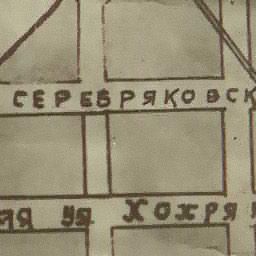 СЕРЕБРЯКОВСК
ая ул Хохря